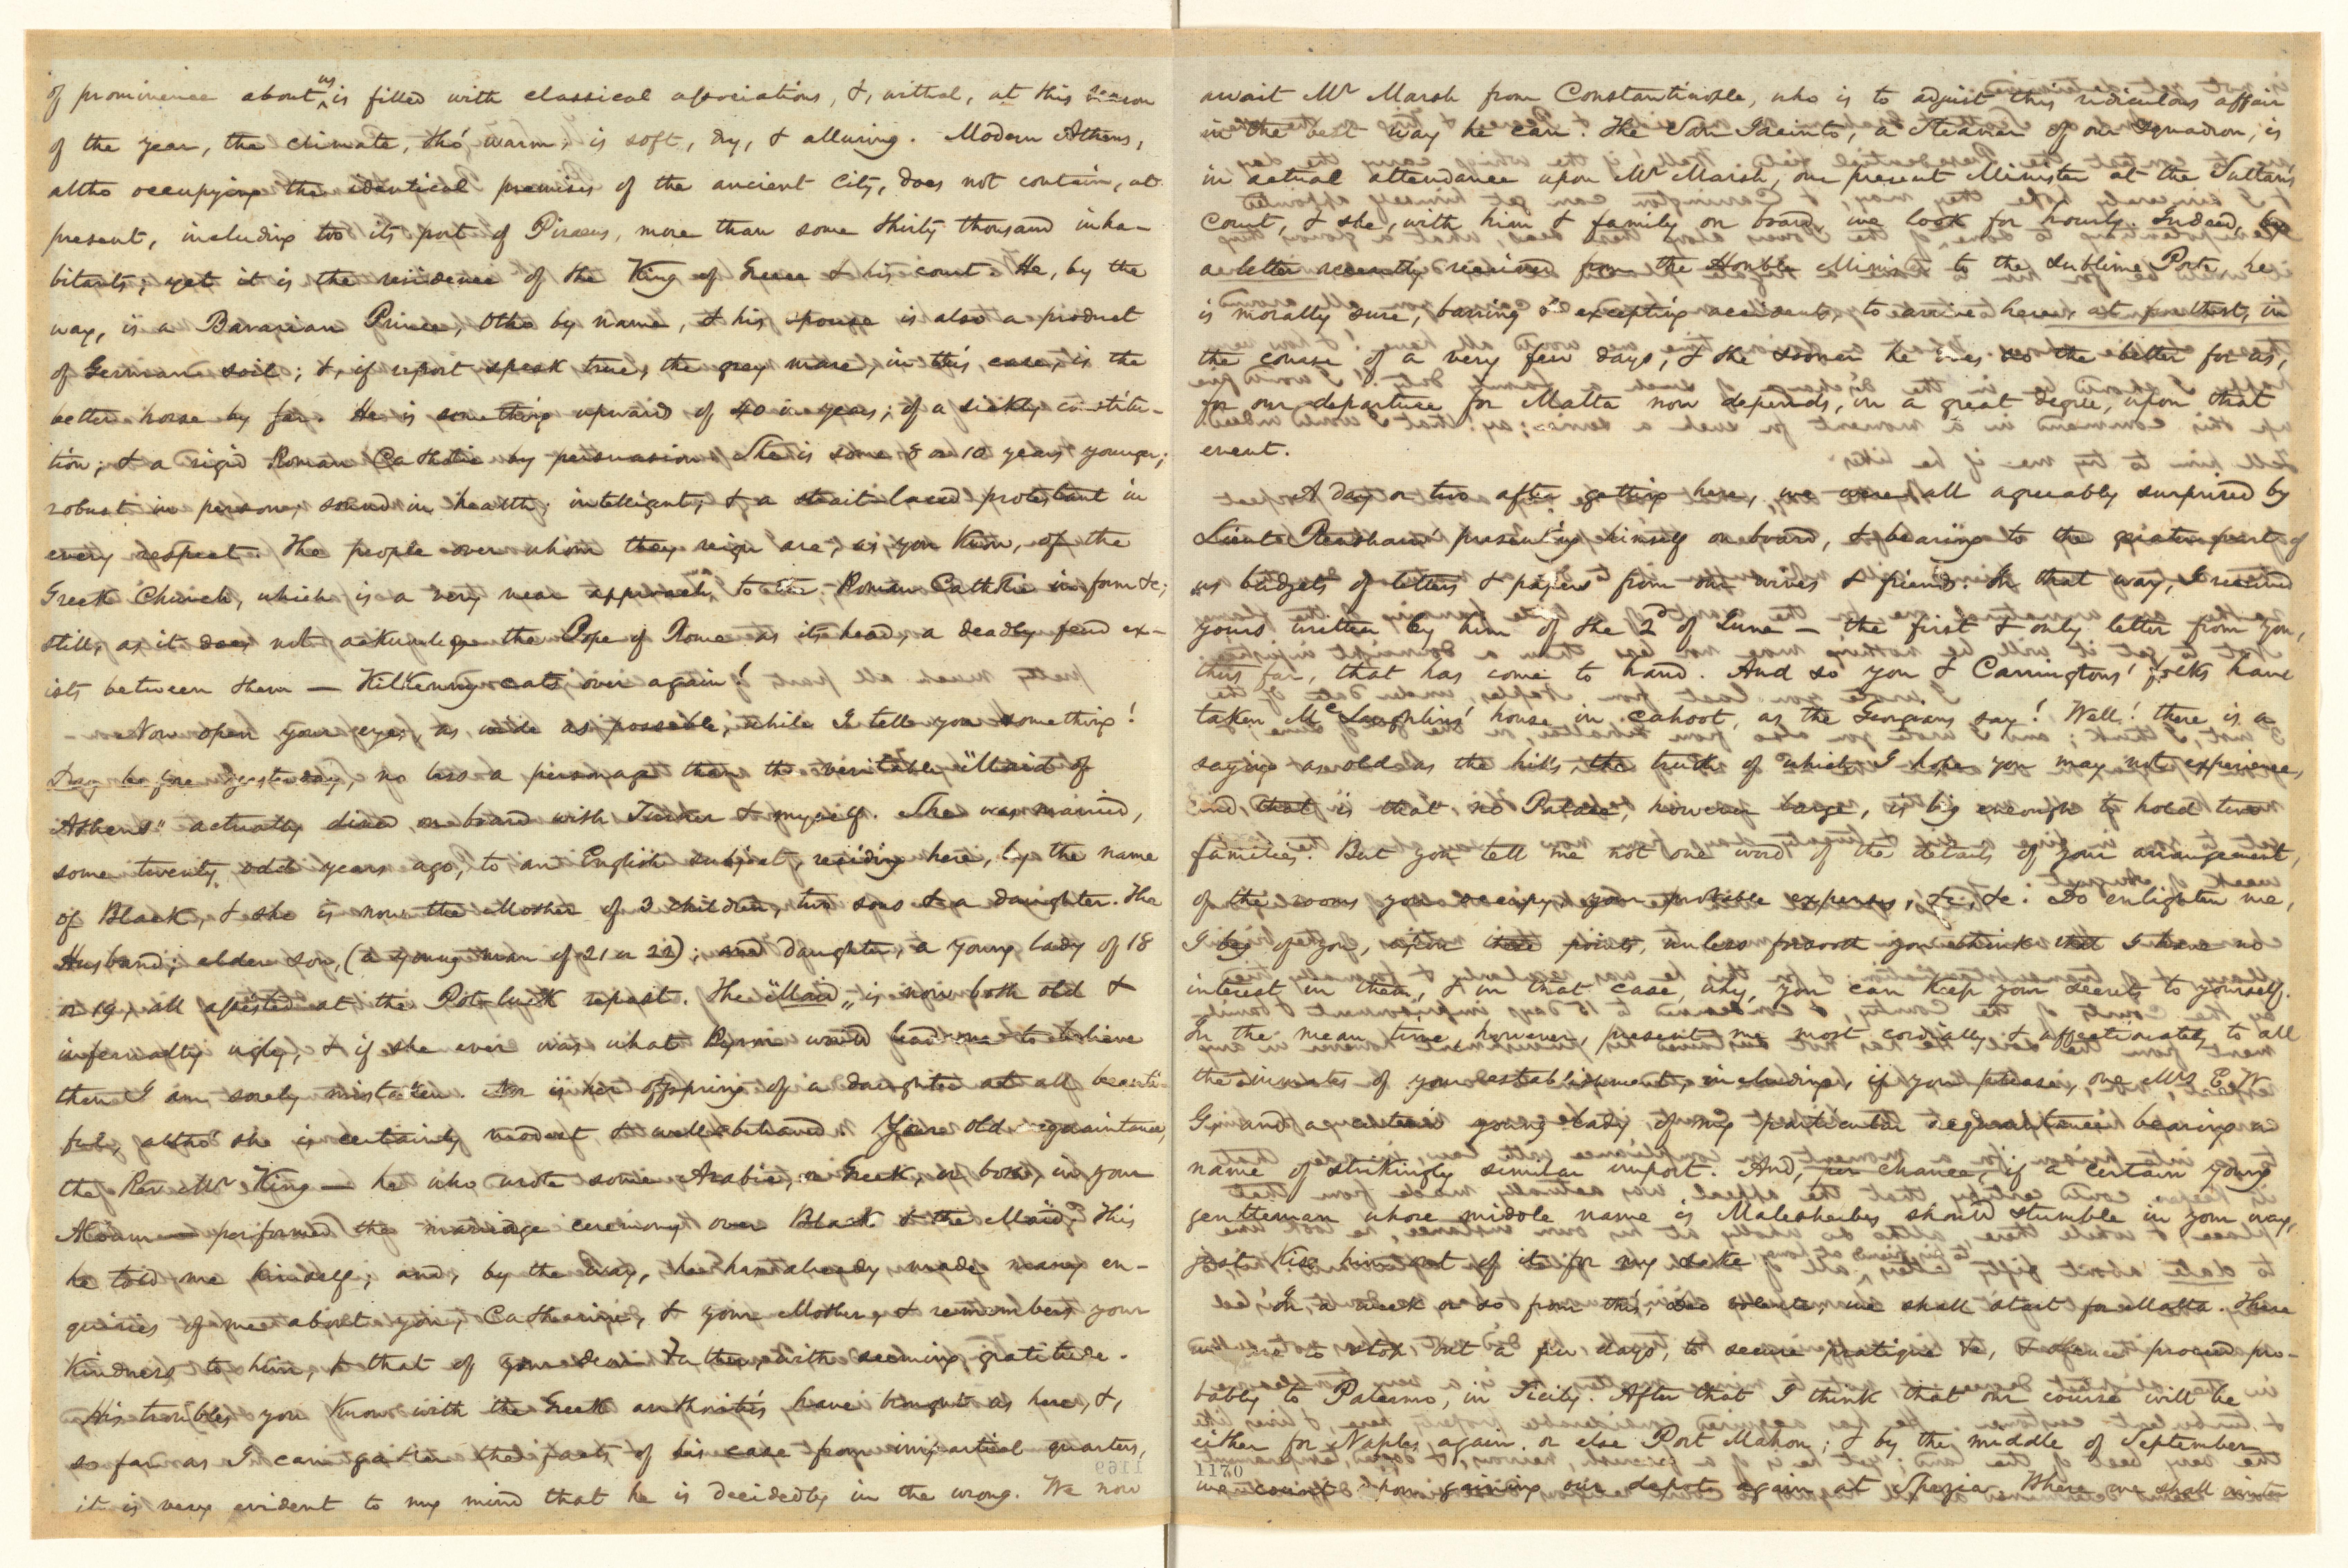 of prominence about us is filled with classical associations, &, withal, at this season
of the year, the climate, tho' warm, is soft, dry, & alluring. Modern Athens,
altho occupying the identical premises of the ancient City, does not contain, at
present, including too its port of Piraeus, more than some thirty thousand inha-
bitants; yet it is the residence of the King of Greece & his court. He, by the
way, is a Bavarian Prince, Otho by name, & his spouse is also a product
of German soil; &, if report speak true, the grey mare, in this case, is the
better horse by far. He is something upward of 40 in years; of a sickly constitu-
tion; & a rigid Roman Catholic by persuasion. She is some 8 or 10 years younger;
robust in person, sound in health, intelligent, & a strait laced protestant in
every respect. The people over whom they reign are, as you know, of the
Greek Church, which is a very near approach to the Roman Catholic in form &c;
still, as it does not acknowledge the Pope of Rome as its head, a deadly feud ex-
ists between them — Kilkenny cats over again!
Now open your eyes, as wide as possible, while I tell you something!
Day before yesterday, no less a personage than the veritable "Maid of
Athens" actually dined on board with Tucker & myself. She was married,
some twenty odd years ago, to an English subject, residing here, by the name
of Black, & she is now the Mother of 3 children, two sons & a daughter. The
Husband; elder son, (a young man of 21 or 22); and daughter, a young lady of 18
or 19, all assisted at the Pot-luck repast. The "Maid" is now both old &
infernally ugly, & if she ever was what Byron would lead one to believe
then I am sorely mistaken. Nor is her offspring of a daughter at all beauti-
ful, altho' she is certainly modest & well behaved. Your old acquaintance,
the Rev Mr King — he who wrote some Arabic, or Greek, or both, in your
Album — performed the marriage ceremony over Black & the Maid, this
he told me himself; and, by the way, he has already made many en-
quiries of me about you, Catharine, & your Mother, & remembers your
kindness to him, & that of your dear Father, with seeming gratitude.
His troubles you know with the Greek authorities have brought us here, &,
so far as I can gather the facts of his case from impartial quarters,
it is very evident to my mind that he is decidedly in the wrong. We now
await Mr Marsh from Constantinople, who is to adjust this ridiculous affair
in the best way he can. The San Jacinto, a Steamer of our Squadron, is
in actual attendance upon Mr Marsh, our present Minister at the Sultan's
Court, & she, with him & family on board, we look for hourly. Indeed, by
a letter recently received from the Honble Minister to the Sublime Porte, he
is morally sure, barring & excepting accidents, to arrive here, at farthest, in
the course of a very few days; & the sooner he comes so the better for us,
for our departure for Malta now depends, in a great degree, upon that
event.
A day or two after getting here, we were all agreeably surprised by
Lieut Renshaw presenting himself on board, & bearing to the greater part of
us budgets of letters & papers from our wives & friends. In that way, I received
yours written by him of the 2d of June — the first & only letter from you,
thus far, that has come to hand. And so you & Carringtons' folks have
taken McLaughlins' house in cahoot, as the Georgians say! Well! there is a
saying as old as the hills, the truth of which I hope you may not experience,
and that is that no Palace, however large, is big enough to hold two
families. But you tell me not one word of the details of your arrangement,
of the rooms you occupy, your probable expenses, &c, &c. Do enlighten me,
I beg of you, upon these points, unless forsooth you think that I have no
interest in them, & in that case, why, you can keep your secrets to yourself.
In the mean time, however, present me most cordially & affectionately to all
the inmates of your establishment, including, if you please, one Mrs E. W.
G, and a certain young lady of my particular acquaintance bearing a
name of strikingly similar import. And, per chance, if a certain young
gentleman whose middle name is Malesherbes should stumble in your way,
just kiss him out of it for my sake.
In a week or so from this, deo volente, we shall start for Malta. There
we are to stop but a few days, to secure pratique &c, & thence proceed pro-
bably to Palermo, in Sicily. After that I think that our course will be
either for Naples again, or else Port Mahon; & by the middle of September
1169
1170
we count upon gaining our depot again at Spezia. Where we shall winter